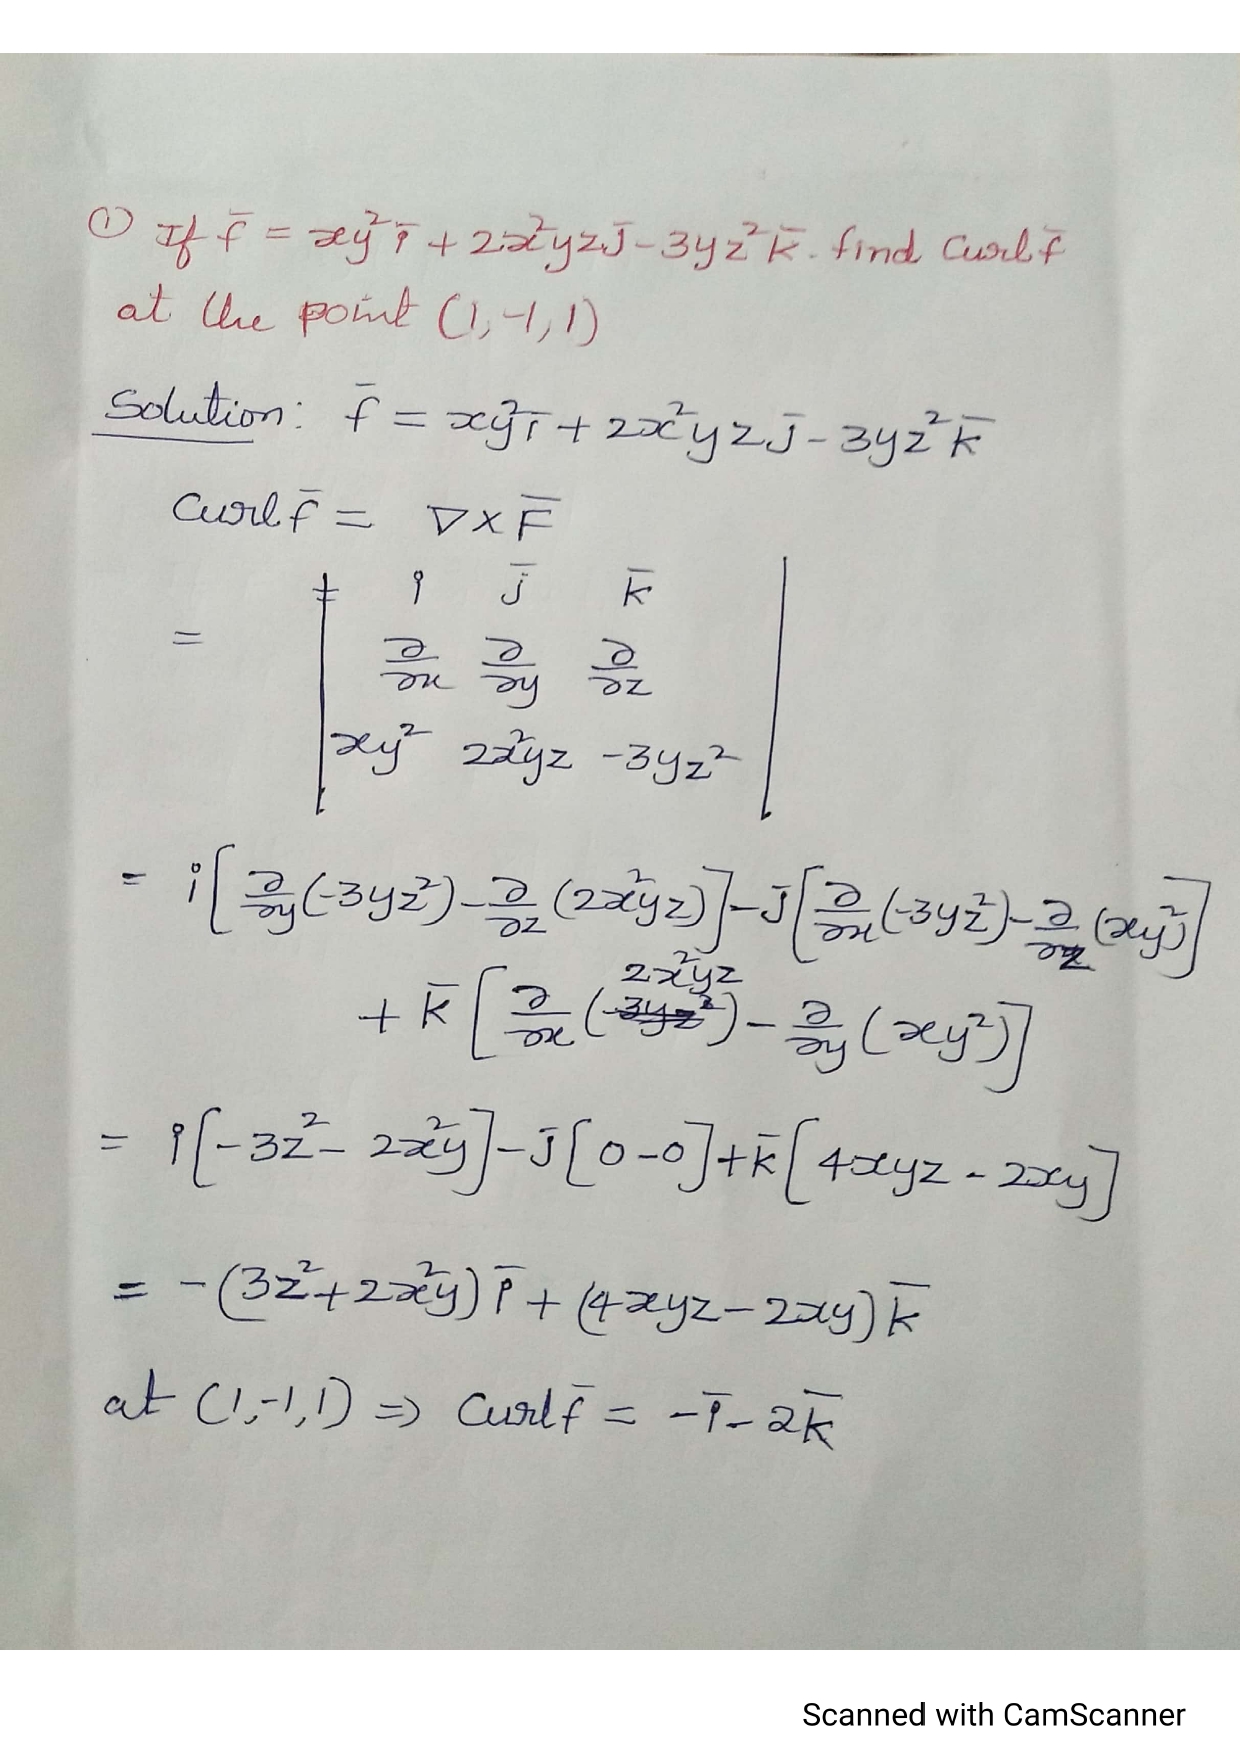 ① If f̄ = xy²ī + 2x²yzj̄ - 3yz²k̄. find Curl f̄
at the point (1, -1, 1)
Solution: f̄ = xy²ī + 2x²yzj̄ - 3yz²k̄
Curl f̄ = ∇ × F̄
i j̄ k̄
= | ∂/∂x ∂/∂y ∂/∂z |
xy² 2x²yz -3yz²
= i[∂/∂y(-3yz²) - ∂/∂z(2x²yz)] - j̄[∂/∂x(-3yz²) - ∂/∂z(xy²)]
+ k̄[∂/∂x(2x²yz) - ∂/∂y(xy²)]
= i[-3z² - 2x²y] - j̄[0-0] + k̄[4xyz - 2xy]
= -(3z² + 2x²y)ī + (4xyz - 2xy)k̄
at (1,-1,1) ⇒ Curl f̄ = -ī - 2k̄
Scanned with CamScanner